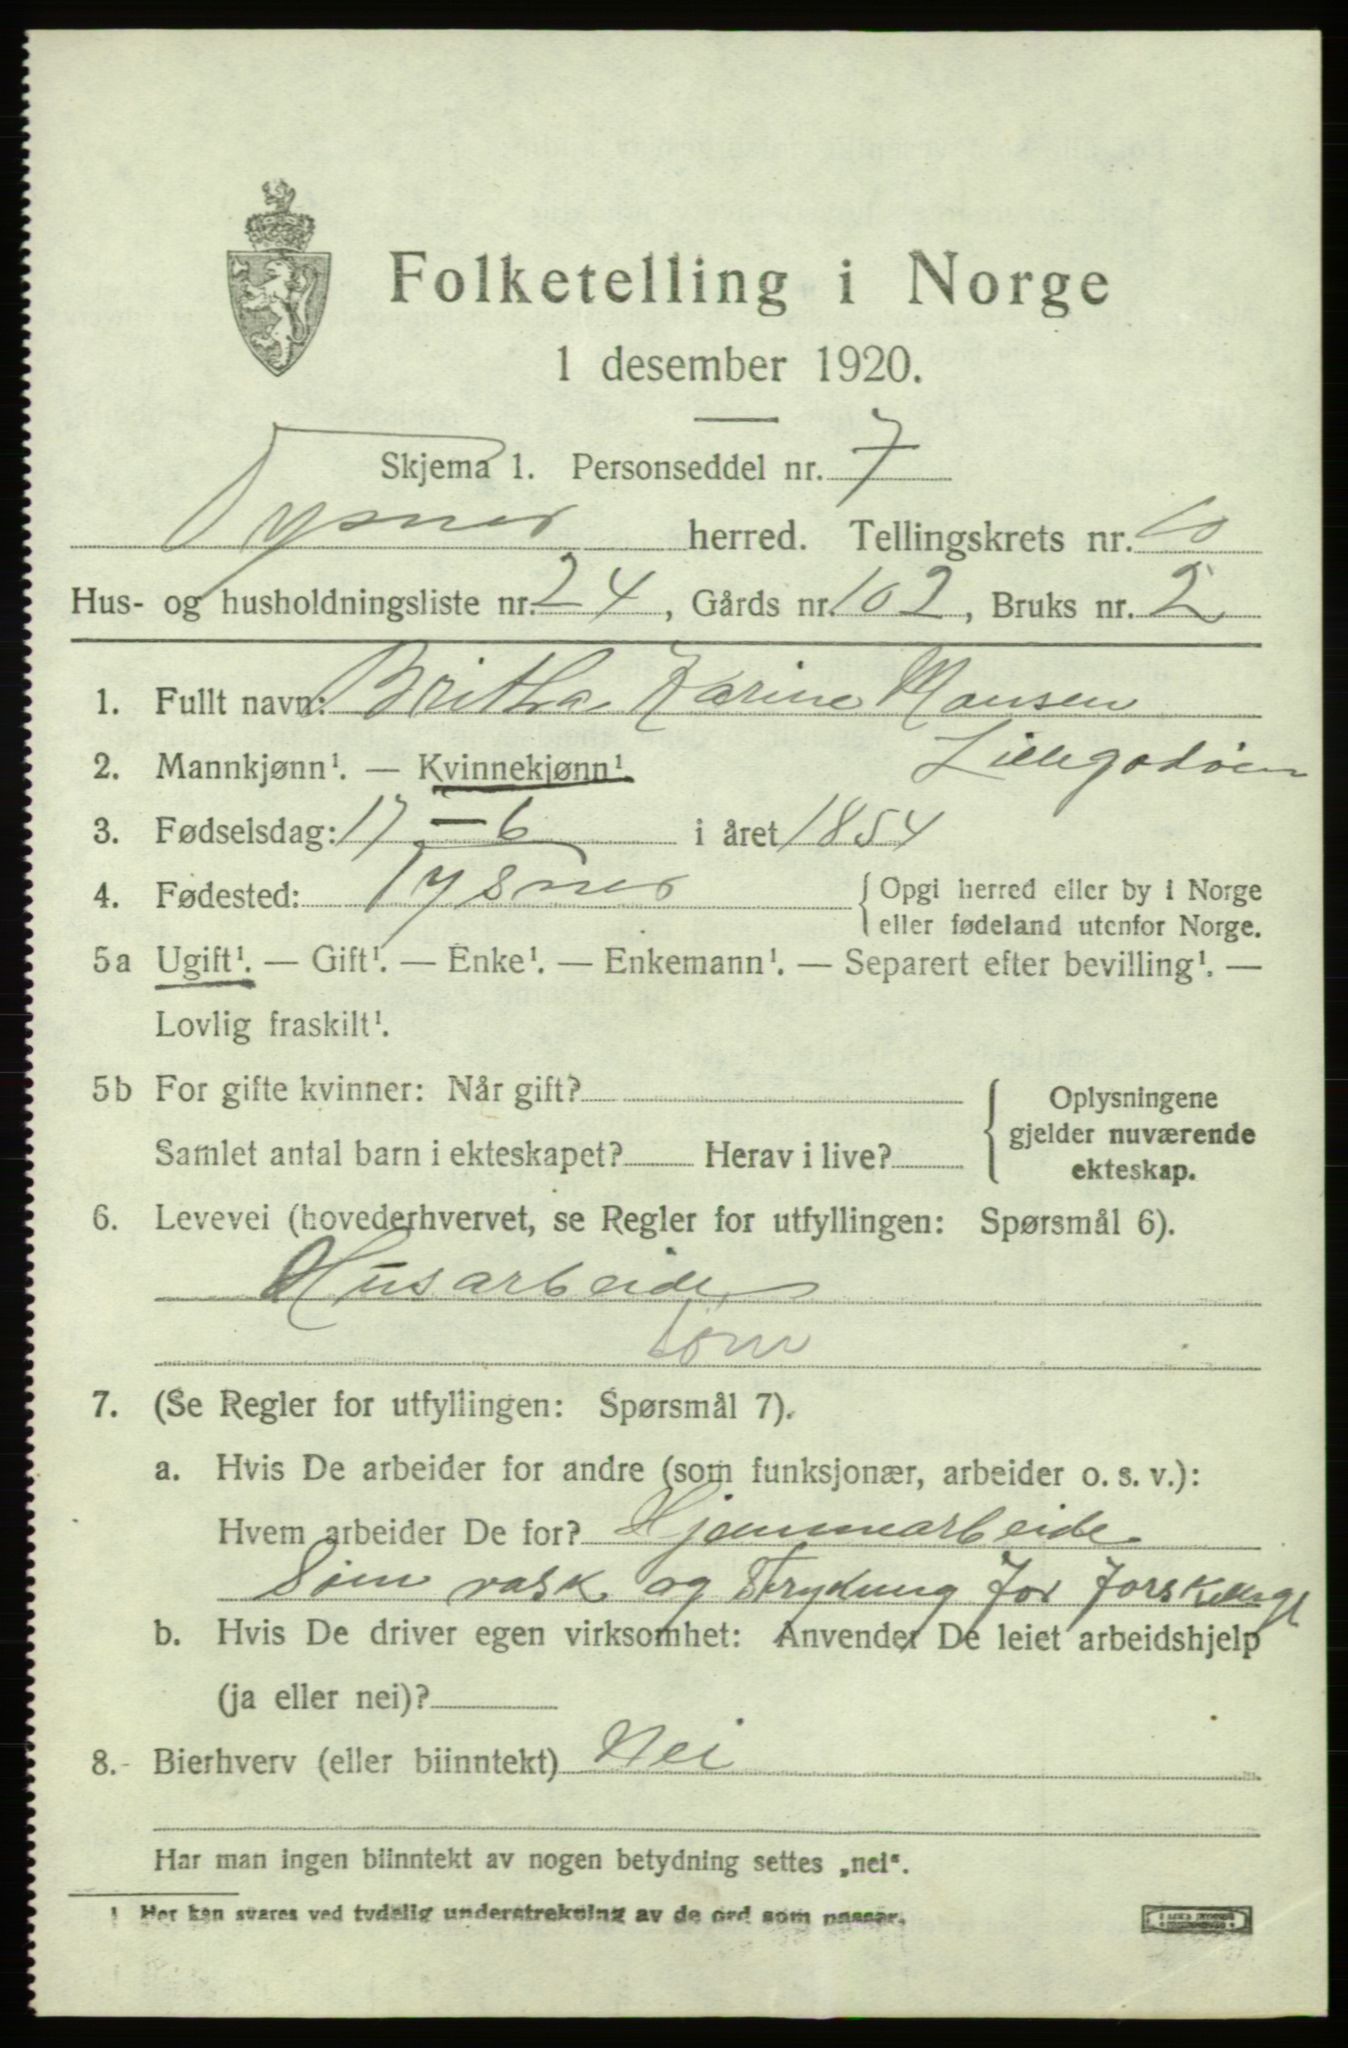 Folketelling i Norge
1 desember 1920.
Skjema 1. Personseddel nr. 7
Tysnes herred. Tellingskrets nr. 10
Hus- og husholdningsliste nr. 24, Gårds nr. 102, Bruks nr. 2
1. Fullt navn: Britha Karine Hansen
2. Mannkjønn¹. — Kvinnekjønn¹.
3. Fødselsdag: 17 – 6 i året 1854
4. Fødested: Tysnes {Opgi herred eller by i Norge
eller fødeland utenfor Norge.
5a Ugift¹. — Gift¹. — Enke¹. — Enkemann¹. — Separert efter bevilling¹. —
Lovlig fraskilt¹.
5b For gifte kvinner: Når gift?
Samlet antal barn i ekteskapet? Herav i live?
{Oplysningene
gjelder nuværende
ekteskap.
6. Levevei (hovederhvervet, se Regler for utfyllingen: Spørsmål 6).
Husarbeide
Søm
7. (Se Regler for utfyllingen: Spørsmål 7).
a. Hvis De arbeider for andre (som funksjonær, arbeider o. s. v.):
Hvem arbeider De for? Hjemmarbeide
Søm vask og Strykning for forskjellige
b. Hvis De driver egen virksomhet: Anvender De leiet arbeidshjelp
(ja eller nei)?
8. Bierhverv (eller biinntekt) Nei
Har man ingen biinntekt av nogen betydning settes „nei“.
1 Her kan svares ved tydelig understrekning av de ord som passer.